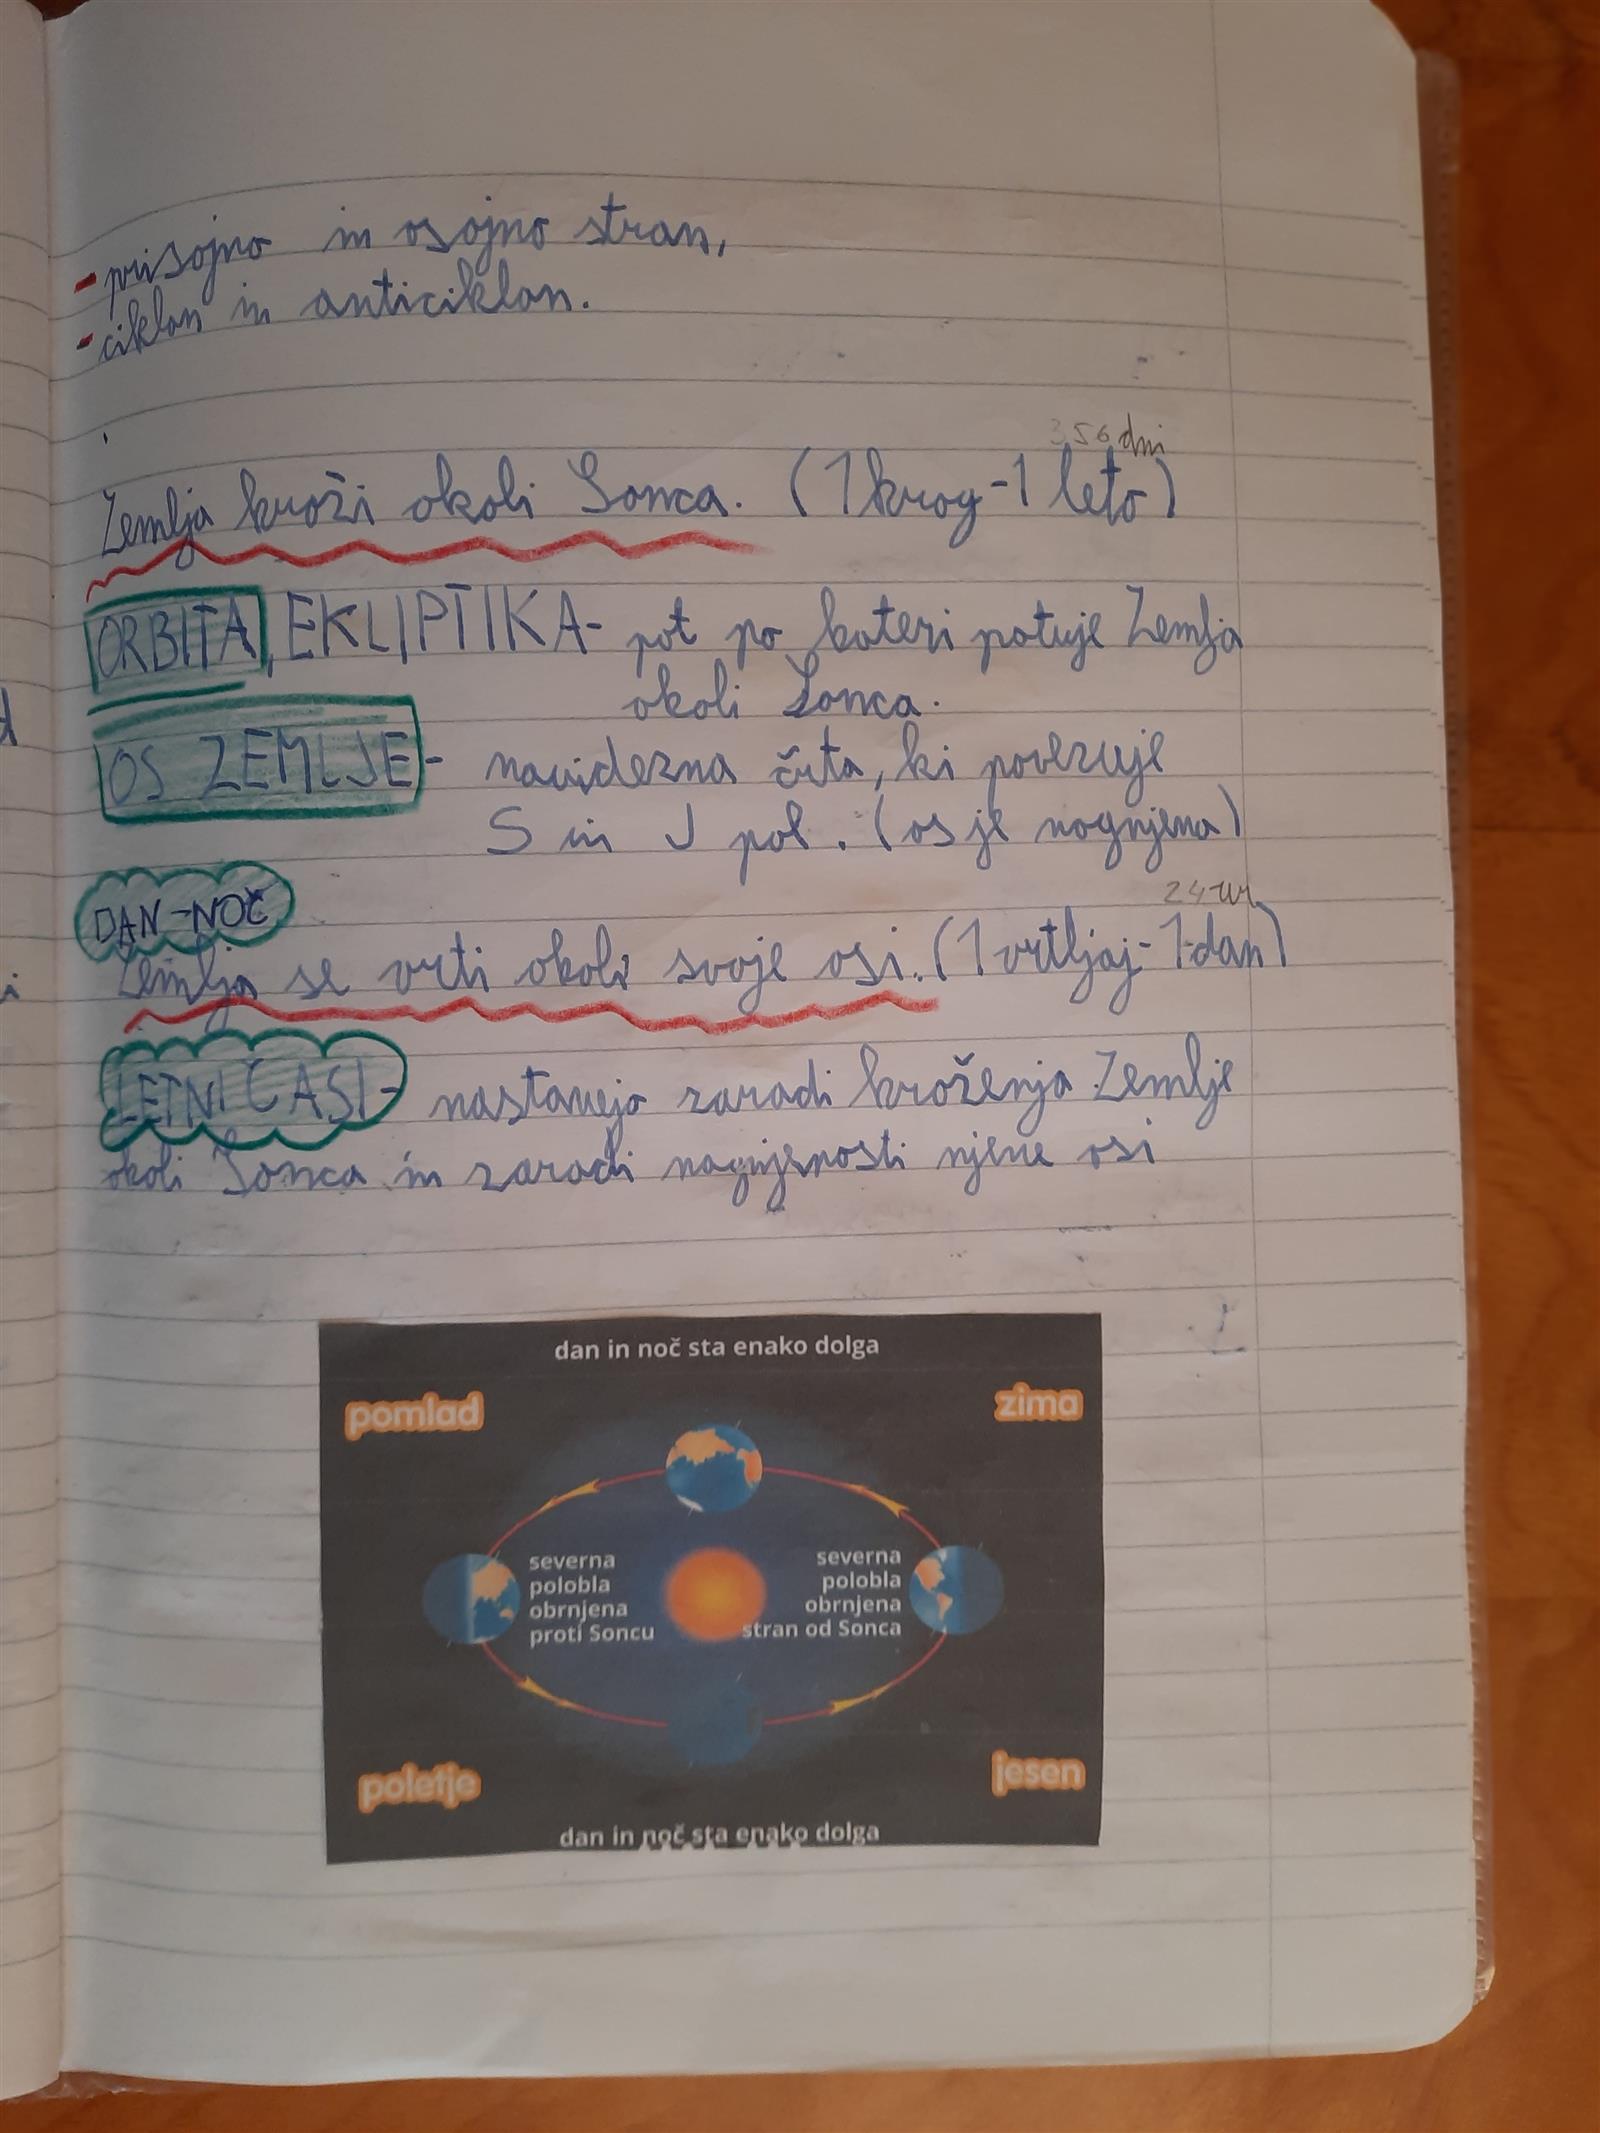 - prisojno in osojno stran,
- ciklon in anticiklon.
356 dni
Zemlja kroži okoli Sonca. (1 krog - 1 leto)
ORBITA, EKLIPTIKA - pot po kateri potuje Zemlja
okoli Sonca.
OS ZEMLJE - navidezna črta, ki povezuje
S in J pol. (os je nagnjena)
DAN - NOČ
24 ur
Zemlja se vrti okoli svoje osi. (1 vrtljaj - 1 dan)
LETNI ČASI - nastanejo zaradi kroženja Zemlje
okoli Sonca in zaradi nagnjenosti njene osi
dan in noč sta enako dolga
pomlad
zima
severna
polobla
obrnjena
proti Soncu
severna
polobla
obrnjena
stran od Sonca
poletje
jesen
dan in noč sta enako dolga